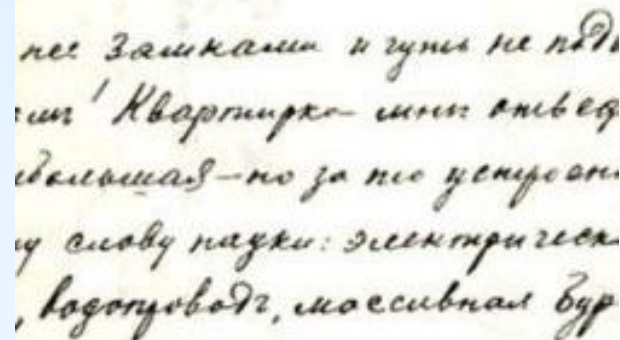 нее замками и чуть не подъ
ами! Квартирка мнѣ отвед
ебольшая – но за то устроен
му слову науки: электрическ
, водопроводъ, массивная бур